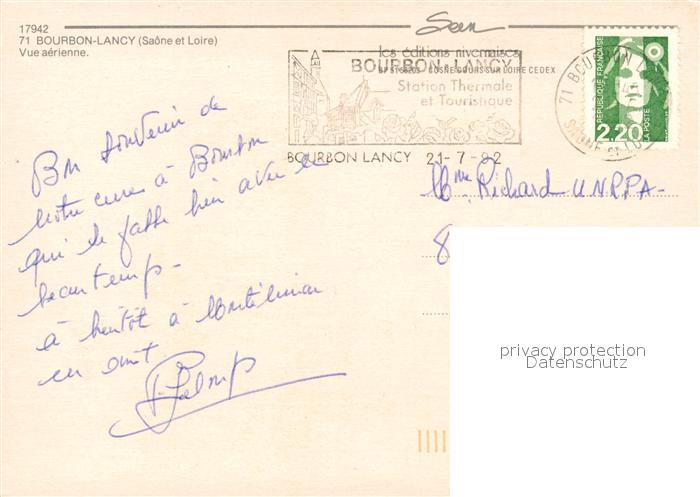 17942
71 BOURBON-LANCY (Saône et Loire)
Vue aérienne.
les éditions nivernaises
COSNE COURS SUR LOIRE CEDEX
BOURBON-LANCY
Station Thermale
et Touristique
BOURBON LANCY 21-7-92
71 BOURBON
REPUBLIQUE FRANÇAISE
LA POSTE
2,20
Bon souvenir de
notre cure à Bourbon
qui se passe bien avec le
beau temps -
à bientôt à Montélimar
en août
Mme Richard UNRPA -
8
privacy protection
Datenschutz